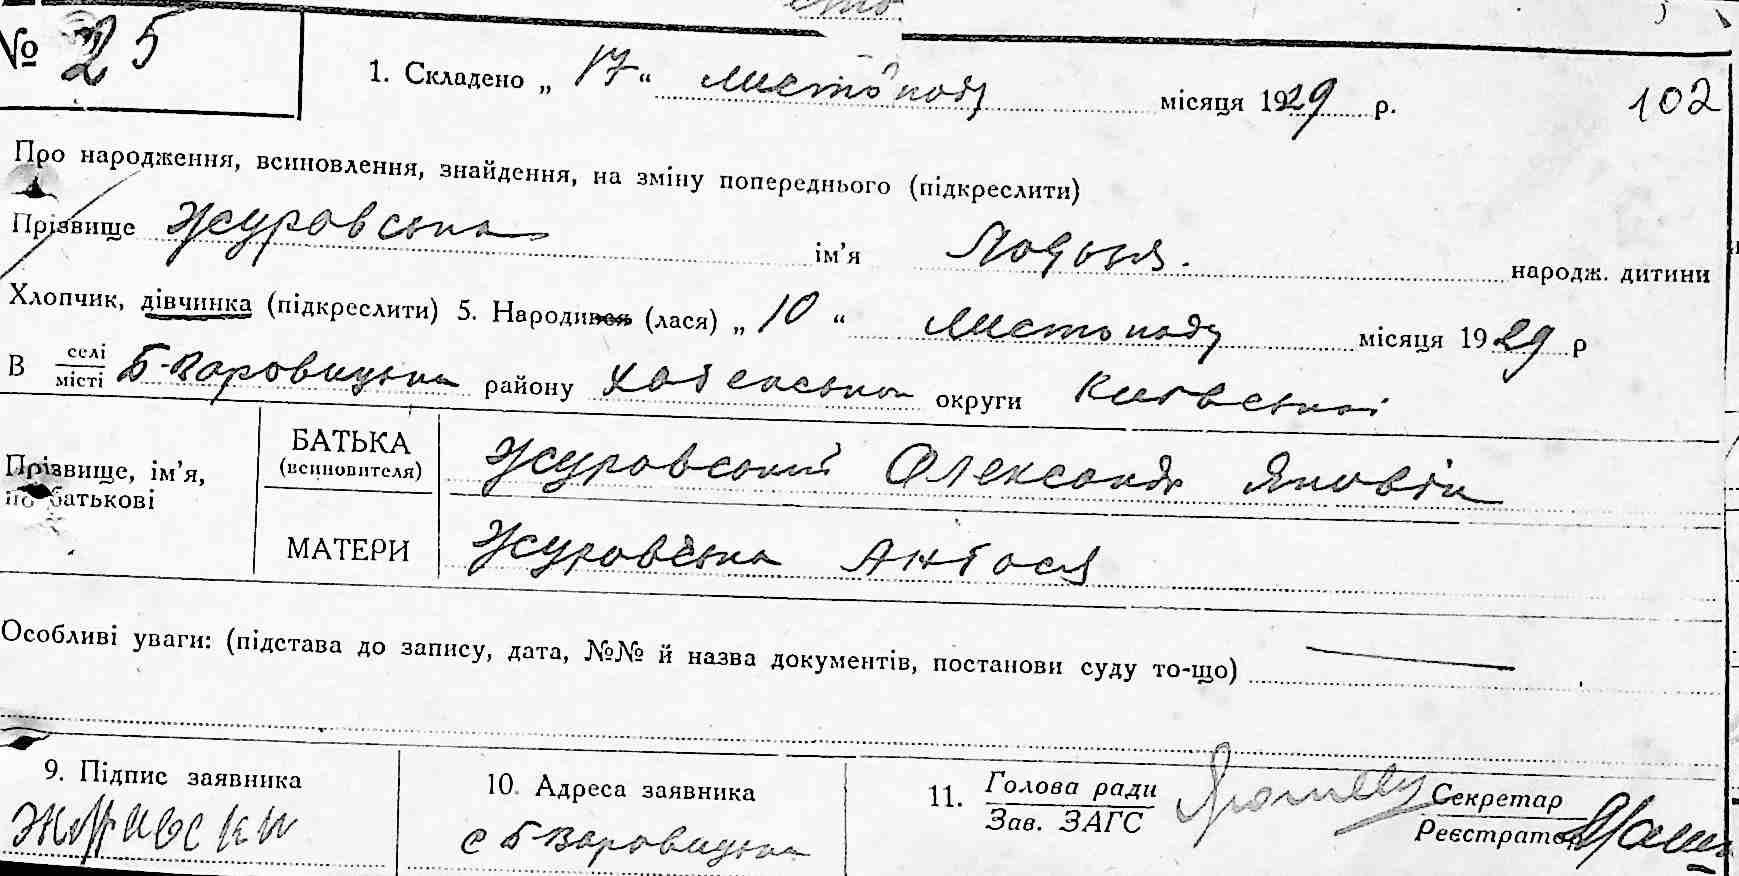 № 25
1. Складено „ 17 “ листопаду місяця 1929 р. 102
Про народження, всиновлення, знайдення, на зміну попереднього (підкреслити)
Прізвище Журовська ім’я народж. дитини
Хлопчик, дівчинка (підкреслити) 5. Народився (лася) „ 10 “ листопаду місяця 1929 р
В селі
місті Б-Варовицька району Хабенська округи Київській
Прізвище, ім’я, по батькові
БАТЬКА (всиновителя) Журовський Олександр Якович
МАТЕРИ Журовська Антося
Особливі уваги: (підстава до запису, дата, №№ й назва документів, постанови суду то-що)
9. Підпис заявника
10. Адреса заявника
с Б-Варовицька
11. Голова ради
Зав. ЗАГС
Секретар
Реєстратор